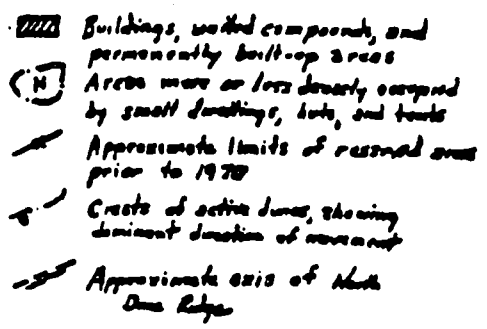 Buildings, walled compounds, and
permanently built-up areas
N
Areas more or less densely occupied
by small dwellings, huts, and tents
Approximate limits of reserved areas
prior to 1978
Crests of active dunes, showing
dominant direction of movement
Approximate axis of North
Dune Ridge